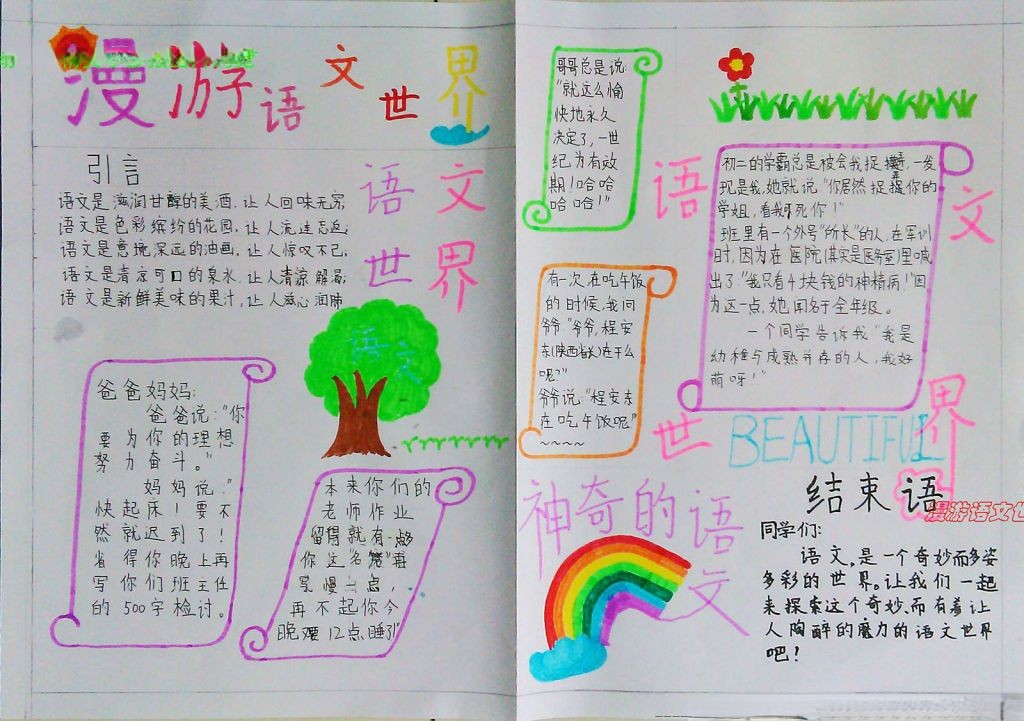 漫游语文世界
引言
语文是滋润甘醇的美酒,让人回味无穷
语文是色彩缤纷的花园,让人流连忘返;
语文是意境深远的油画,让人惊叹不已;
语文是清凉可口的泉水,让人清凉解暑;
语文是新鲜美味的果汁,让人滋心润肺
语文
世界
语文
爸爸妈妈:
爸爸说:"你
要为你的理想
努力奋斗。"
妈妈说:"
快起床!要不
然就迟到了!
省得你晚上再
写你们班主任
的500字检讨。
本来你们的
老师作业
留得就有一点多
你这名 再
写慢 点,
再不起你今
晚 12点睡了!"
哥哥总是说:
"就这么愉
快地永久
决定了,一世
纪为有效
期!哈哈
哈哈!"
有一次在吃午饭
的时候,我问
爷爷"爷爷,程安
东(陕西省长)在干么
呢?"
爷爷说:"程安东
在吃午饭呢!"
~~~~
语文
世界
初二的学霸总是被会我捉 ,一发
现是我,她就说"你居然捉 你的
学姐,看我 死你!"
班里有一个外号"所长"的人,在军训
时,因为在医院(其实是医务室)里喊
出了:"我只有4块钱的神精病!"因
为这一点,她闻名于全年级。
一个同学告诉我"我是
幼稚与成熟并存的人,我好
萌呀!"
BEAUTIFUL
神奇的语
文
结束语
漫游语文世
同学们:
语文,是一个奇妙而多姿
多彩的世界。让我们一起
来探索这个奇妙而有着让
人陶醉的魔力的语文世界
吧!